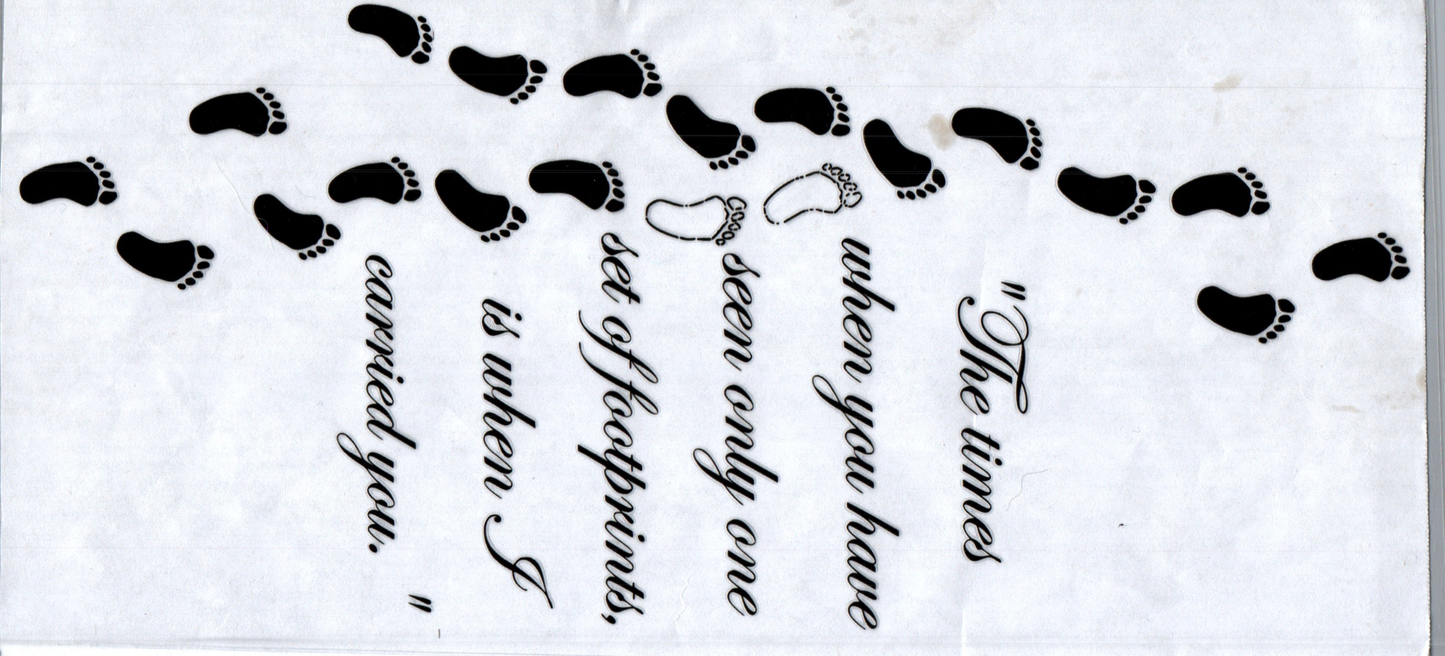 "The times
when you have
seen only one
set of footprints,
is when I
carried you. "